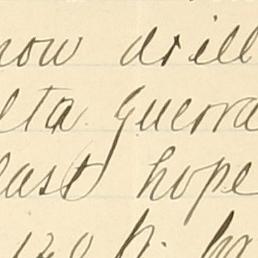 now drill
lta Gueora
last hope
120 ft.